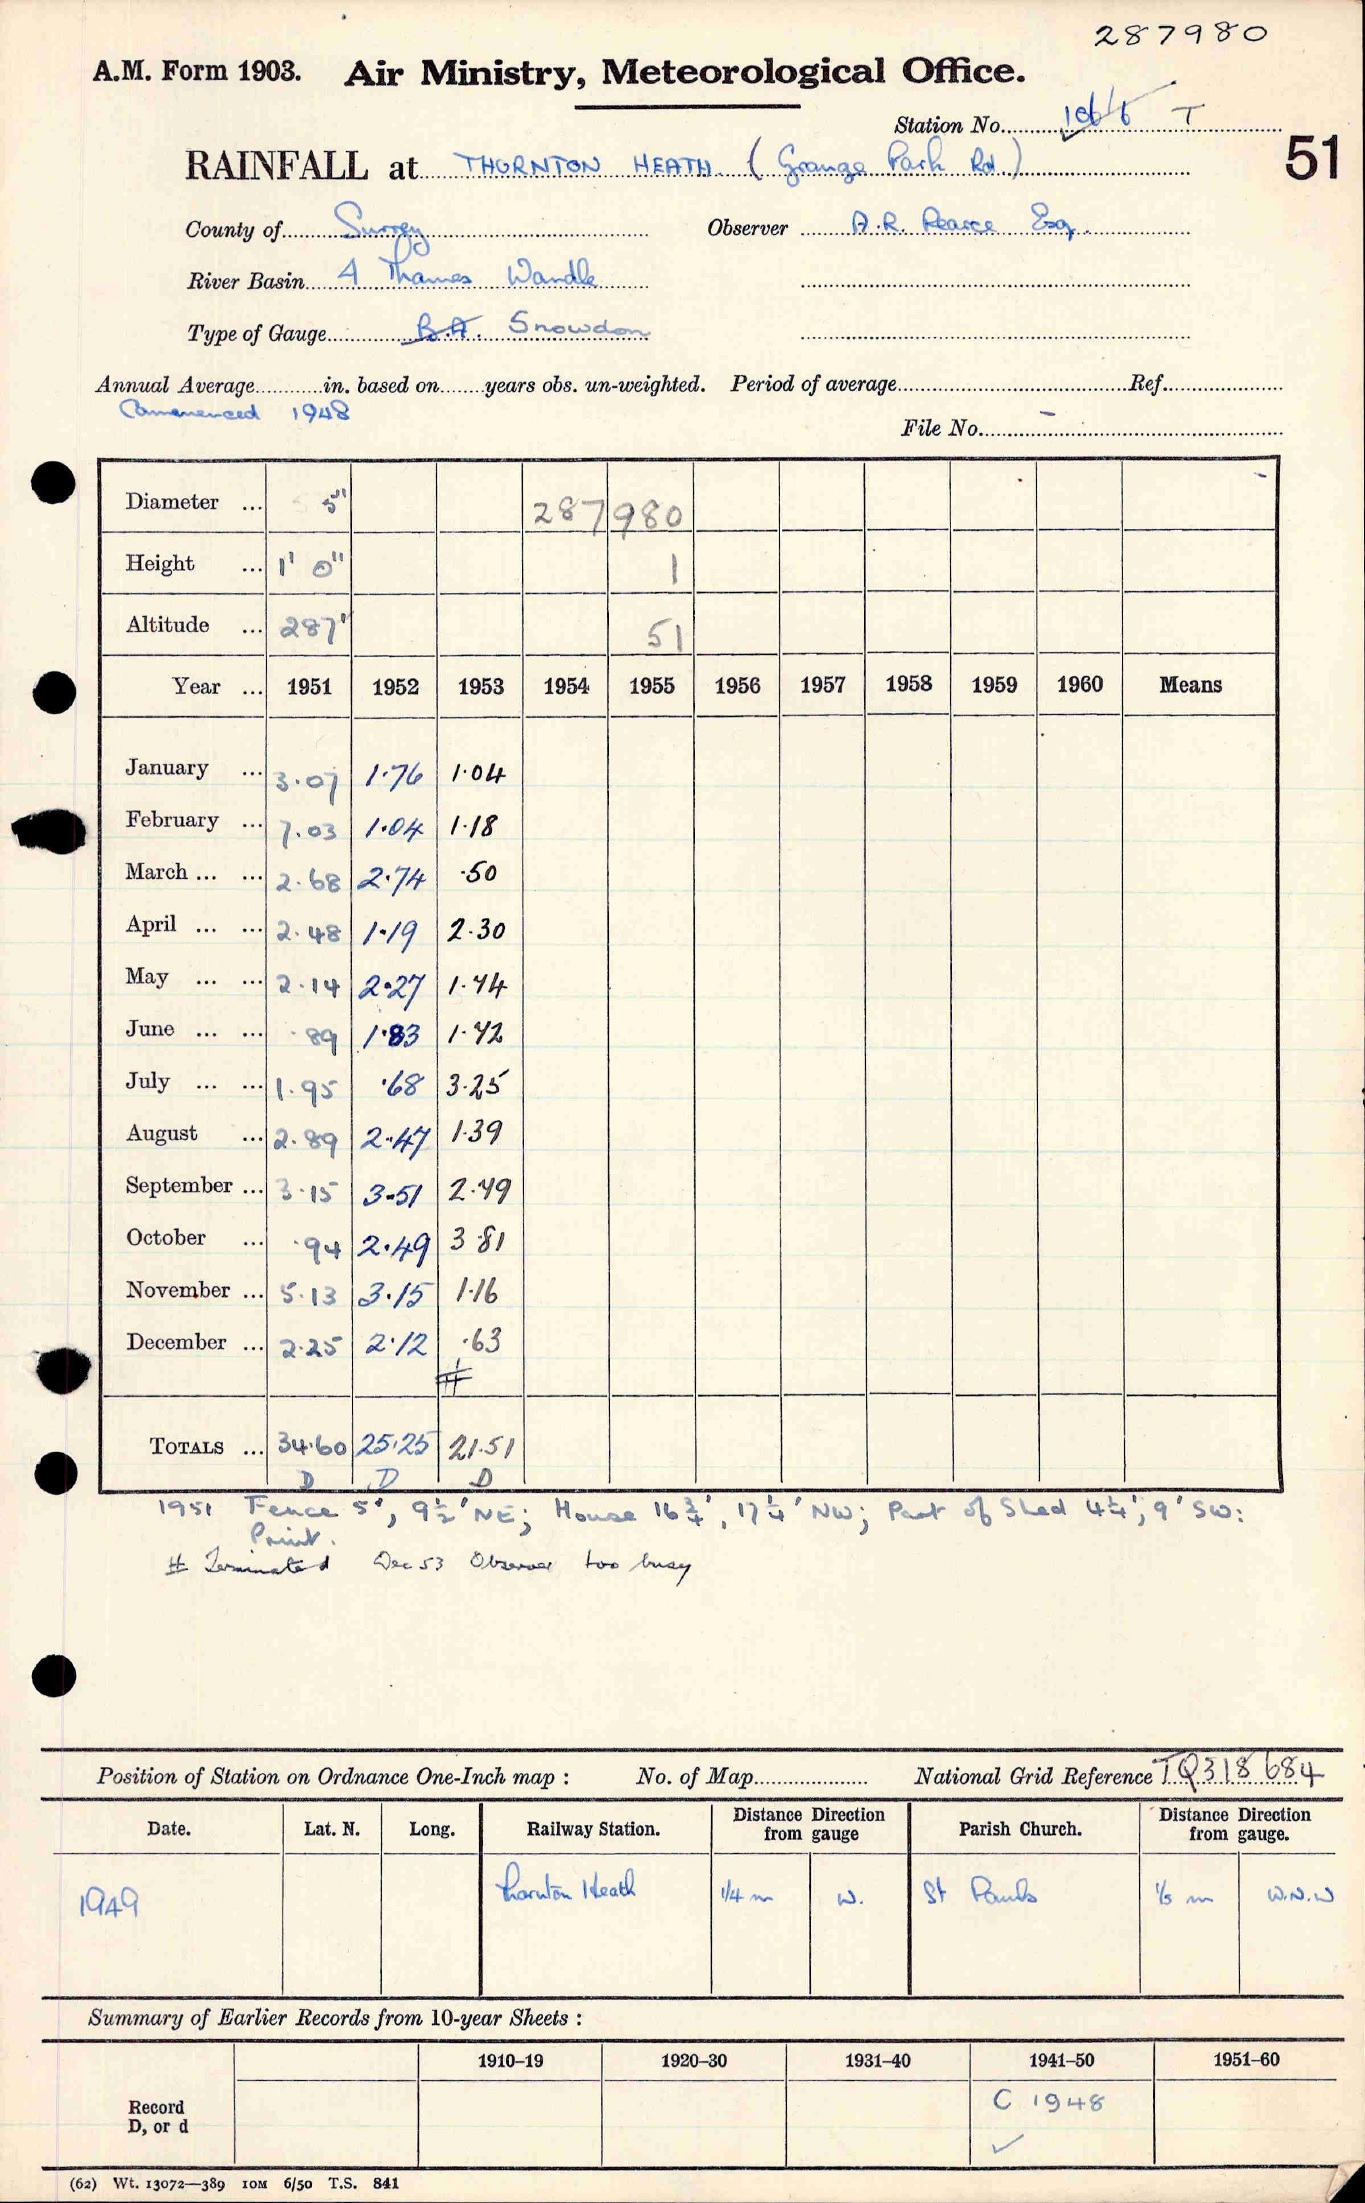 287980
A.M. Form 1903. Air Ministry, Meteorological Office.
Station No. 1066 T
51
RAINFALL at THORNTON HEATH (Grange Park Rd)
County of Surrey Observer A.R. Pearce Esq.
River Basin 4 Thames Wandle
Type of Gauge B.A. Snowdon
Annual Average in. based on years obs. un-weighted. Period of average Ref.
Commenced 1948
File No. –
Diameter ... 5" 287980
Height ... 1' 0" 1
Altitude ... 287' 51
Year ... 1951 1952 1953 1954 1955 1956 1957 1958 1959 1960 Means
January ... 3.07 1.76 1.04
February ... 7.03 1.04 1.18
March ... ... 2.68 2.74 .50
April ... ... 2.48 1.19 2.30
May ... ... 2.14 2.27 1.74
June ... ... .89 1.83 1.72
July ... ... 1.95 .68 3.25
August ... 2.89 2.47 1.39
September ... 3.15 3.51 2.79
October ... .94 2.49 3.81
November ... 5.13 3.15 1.16
December ... 2.25 2.12 .63
#
TOTALS ... 34.60 25.25 21.51
D D D
1951 Fence 5', 9½' NE; House 16¾', 17¼' NW; Part of Shed 4¼', 9' SW:
Print.
# Terminated Dec 53 Observer too busy
Position of Station on Ordnance One-Inch map : No. of Map National Grid Reference TQ318684
Date. Lat. N. Long. Railway Station. Distance Direction from gauge Parish Church. Distance Direction from gauge.
1949 Thornton Heath 1/4 m W. St Pauls 1/5 m W.N.W
Summary of Earlier Records from 10-year Sheets :
1910–19 1920–30 1931–40 1941–50 1951–60
Record D, or d C 1948 ✓
(62) Wt. 13072—389 10M 6/50 T.S. 841